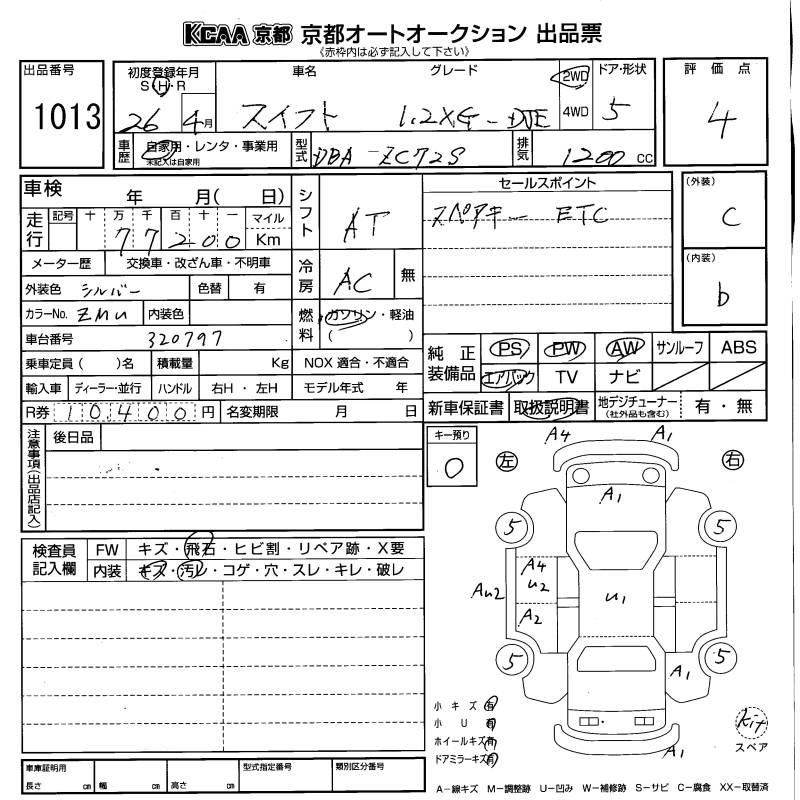 KCAA 京都 京都オートオークション 出品票
《赤枠内は必ず記入して下さい》
出品番号
1013
初度登録年月
S・H・R
26 4月
車名 グレード
スイフト 1.2XG-DJE
2WD
4WD
ドア・形状
5
評価点
4
車歴
自家用・レンタ・事業用
未記入は自家用
型式
DBA-ZC72S
排気
1200 cc
車検 年 月( 日)
走行
記号 十 万 千 百 十 一
77200
マイル
Km
メーター歴 交換車・改ざん車・不明車
外装色 シルバー 色替 有
カラーNo. ZMU 内装色
車台番号 320797
乗車定員( )名 積載量 Kg
輸入車 ディーラー・並行 ハンドル 右H・左H
R券 10400円 名変期限 月 日
シフト AT
冷房 AC 無
燃料 ガソリン・軽油
( )
NOX 適合・不適合
モデル年式 年
セールスポイント
スペアキー ETC
(外装)
C
(内装)
b
純正装備品
PS PW AW サンルーフ ABS
エアバック TV ナビ
新車保証書 取扱説明書 地デジチューナー 有・無
(社外品も含む)
注意事項(出品店記入)
後日品
キー預り
0
左
右
A4 A1
A1
5 5
A4
U2
AU2
A2
U1
5 5
A1
A1
検査員記入欄
FW キズ・飛石・ヒビ割・リペア跡・X要
内装 キズ・汚レ・コゲ・穴・スレ・キレ・破レ
小キズ 有
小U 有
ホイールキズ 有
ドアミラーキズ 有
kit
スペア
車庫証明用
長さ cm 幅 cm 高さ cm
型式指定番号
類別区分番号
A-線キズ M-調整跡 U-凹み W-補修跡 S-サビ C-腐食 XX-取替済